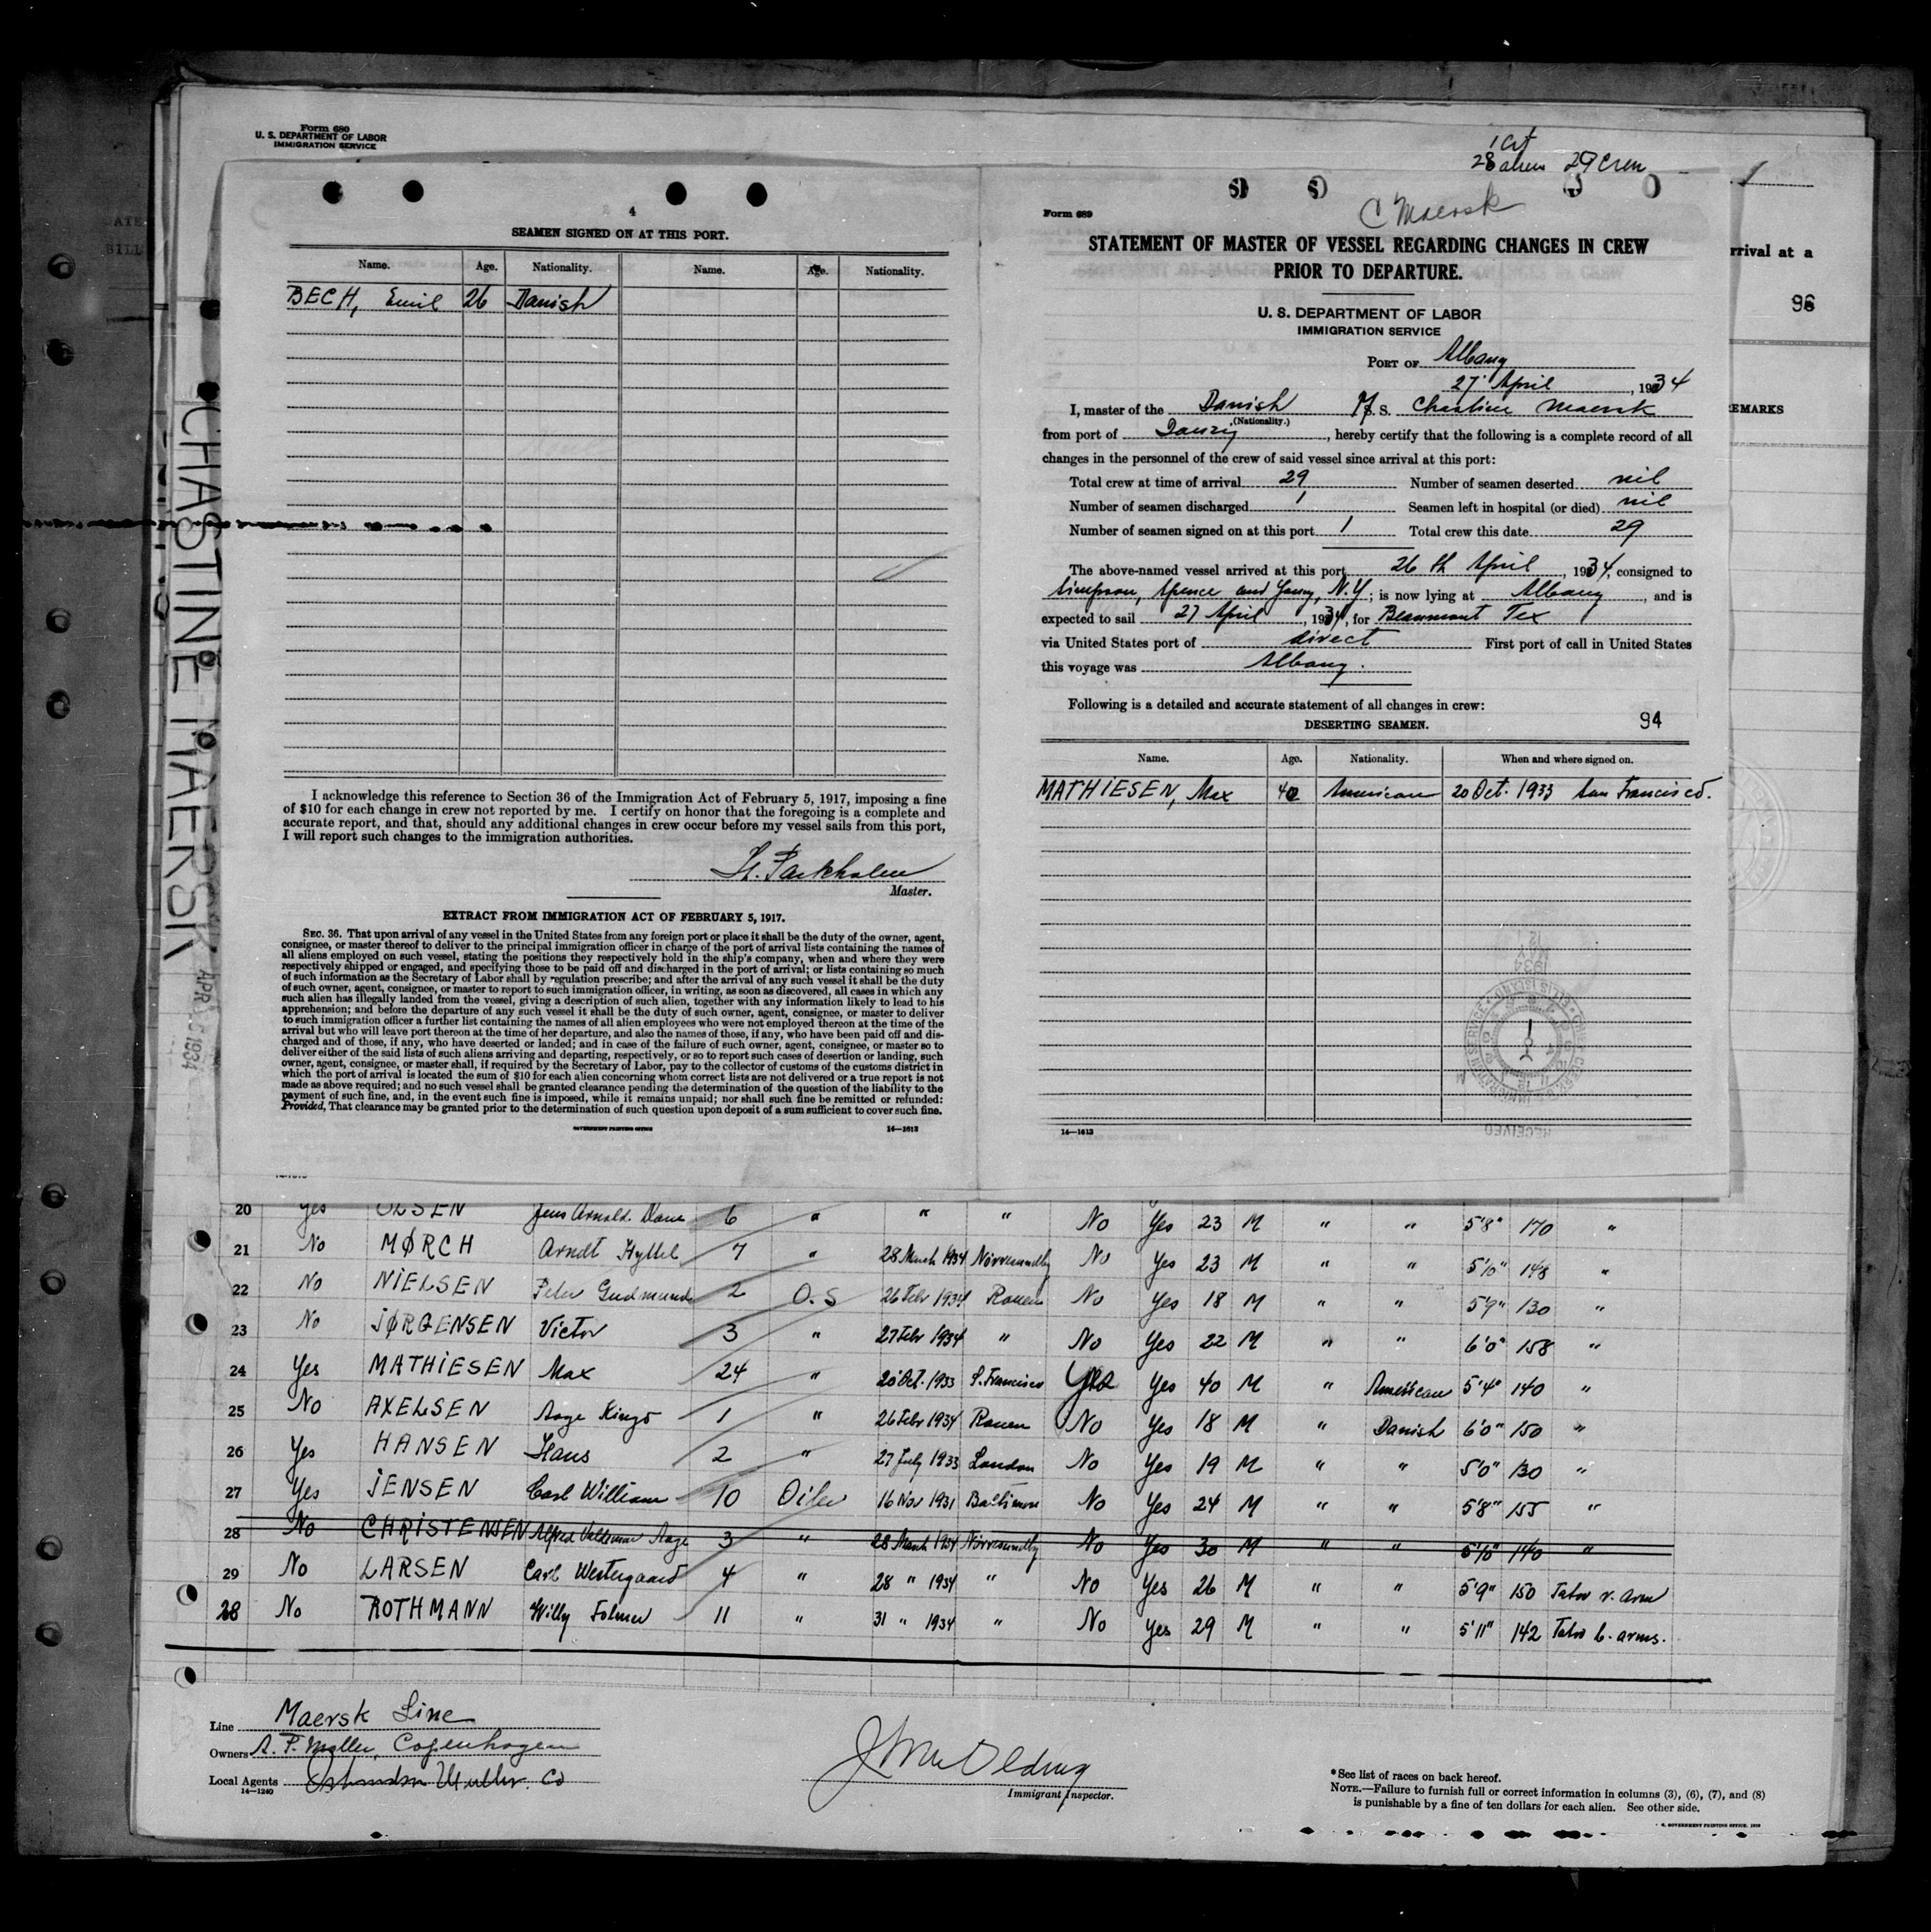 Form 680
U. S. DEPARTMENT OF LABOR
IMMIGRATION SERVICE
1 Cit
28 aliens 29 Crew
rrival at a
96
EMARKS
CHASTINE MAERSK
APR 1934
4
SEAMEN SIGNED ON AT THIS PORT.
Name. Age. Nationality. Name. Age. Nationality.
BECH, Emil 26 Danish
I acknowledge this reference to Section 36 of the Immigration Act of February 5, 1917, imposing a fine
of $10 for each change in crew not reported by me. I certify on honor that the foregoing is a complete and
accurate report, and that, should any additional changes in crew occur before my vessel sails from this port,
I will report such changes to the immigration authorities.
Master.
EXTRACT FROM IMMIGRATION ACT OF FEBRUARY 5, 1917.
SEC. 36. That upon arrival of any vessel in the United States from any foreign port or place it shall be the duty of the owner, agent,
consignee, or master thereof to deliver to the principal immigration officer in charge of the port of arrival lists containing the names of
all aliens employed on such vessel, stating the positions they respectively hold in the ship's company, when and where they were
respectively shipped or engaged, and specifying those to be paid off and discharged in the port of arrival; or lists containing so much
of such information as the Secretary of Labor shall by regulation prescribe; and after the arrival of any such vessel it shall be the duty
of such owner, agent, consignee, or master to report to such immigration officer, in writing, as soon as discovered, all cases in which any
such alien has illegally landed from the vessel, giving a description of such alien, together with any information likely to lead to his
apprehension; and before the departure of any such vessel it shall be the duty of such owner, agent, consignee, or master to deliver
to such immigration officer a further list containing the names of all alien employees who were not employed thereon at the time of the
arrival but who will leave port thereon at the time of her departure, and also the names of those, if any, who have been paid off and dis-
charged and of those, if any, who have deserted or landed; and in case of the failure of such owner, agent, consignee, or master so to
deliver either of the said lists of such aliens arriving and departing, respectively, or so to report such cases of desertion or landing, such
owner, agent, consignee, or master shall, if required by the Secretary of Labor, pay to the collector of customs of the customs district in
which the port of arrival is located the sum of $10 for each alien concerning whom correct lists are not delivered or a true report is not
made as above required; and no such vessel shall be granted clearance pending the determination of the question of the liability to the
payment of such fine, and, in the event such fine is imposed, while it remains unpaid; nor shall such fine be remitted or refunded:
Provided, That clearance may be granted prior to the determination of such question upon deposit of a sum sufficient to cover such fine.
GOVERNMENT PRINTING OFFICE 14—1613
Form 689
C Maersk
STATEMENT OF MASTER OF VESSEL REGARDING CHANGES IN CREW
PRIOR TO DEPARTURE.
U. S. DEPARTMENT OF LABOR
IMMIGRATION SERVICE
PORT OF Albany
27 April, 1934
I, master of the Danish M. S. Chastine Maersk
(Nationality.)
from port of Danzig, hereby certify that the following is a complete record of all
changes in the personnel of the crew of said vessel since arrival at this port:
Total crew at time of arrival 29 Number of seamen deserted nil
Number of seamen discharged 1 Seamen left in hospital (or died) nil
Number of seamen signed on at this port 1 Total crew this date 29
The above-named vessel arrived at this port 26 th April, 1934, consigned to
Simpson, Spence and Young, N.Y.; is now lying at Albany, and is
expected to sail 27 April, 1934, for Beaumont Tex
via United States port of direct First port of call in United States
this voyage was Albany.
Following is a detailed and accurate statement of all changes in crew:
DESERTING SEAMEN. 94
Name. Age. Nationality. When and where signed on.
MATHIESEN, Max 40 American 20 Oct. 1933 San Francisco.
14—1613
RECEIVED
20 Yes OLSEN Jens Arnold. Dane 6 " " " No Yes 23 M " " 5'8" 170 "
21 No MØRCH Arndt Hyttel 7 " 28 March 1934 Nörresundby No Yes 23 M " " 5'10" 148 "
22 No NIELSEN Peter Gudmund 2 O.S 26 Febr 1934 Rouen No Yes 18 M " " 5'9" 130 "
23 No JØRGENSEN Victor 3 " 27 Febr 1934 " No Yes 22 M " " 6'0" 158 "
24 Yes MATHIESEN Max 24 " 20 Oct. 1933 S. Francisco Yes Yes 40 M " American 5'4" 140 "
25 No AXELSEN Aage Kingo 1 " 26 Febr 1934 Rouen No Yes 18 M " Danish 6'0" 150 "
26 Yes HANSEN Hans 2 " 27 July 1933 London No Yes 19 M " " 5'0" 130 "
27 Yes JENSEN Carl William 10 Oiler 16 Nov 1931 Baltimore No Yes 24 M " " 5'8" 155 "
28 No CHRISTENSEN Alfred Valdemar Aage 3 " 28 March 1934 Nörresundby No Yes 30 M " " 5'10" 140 "
29 No LARSEN Carl Westergaard 4 " 28 " 1934 " No Yes 26 M " " 5'9" 150 Tatov r. arm
28 No ROTHMANN Willy Folmer 11 " 31 " 1934 " No Yes 29 M " " 5'11" 142 Tatov b. arms.
Line Maersk Line
Owners A. P. Moller, Copenhagen
Local Agents
14—1240
Immigrant Inspector.
*See list of races on back hereof.
NOTE.—Failure to furnish full or correct information in columns (3), (6), (7), and (8)
is punishable by a fine of ten dollars for each alien. See other side.